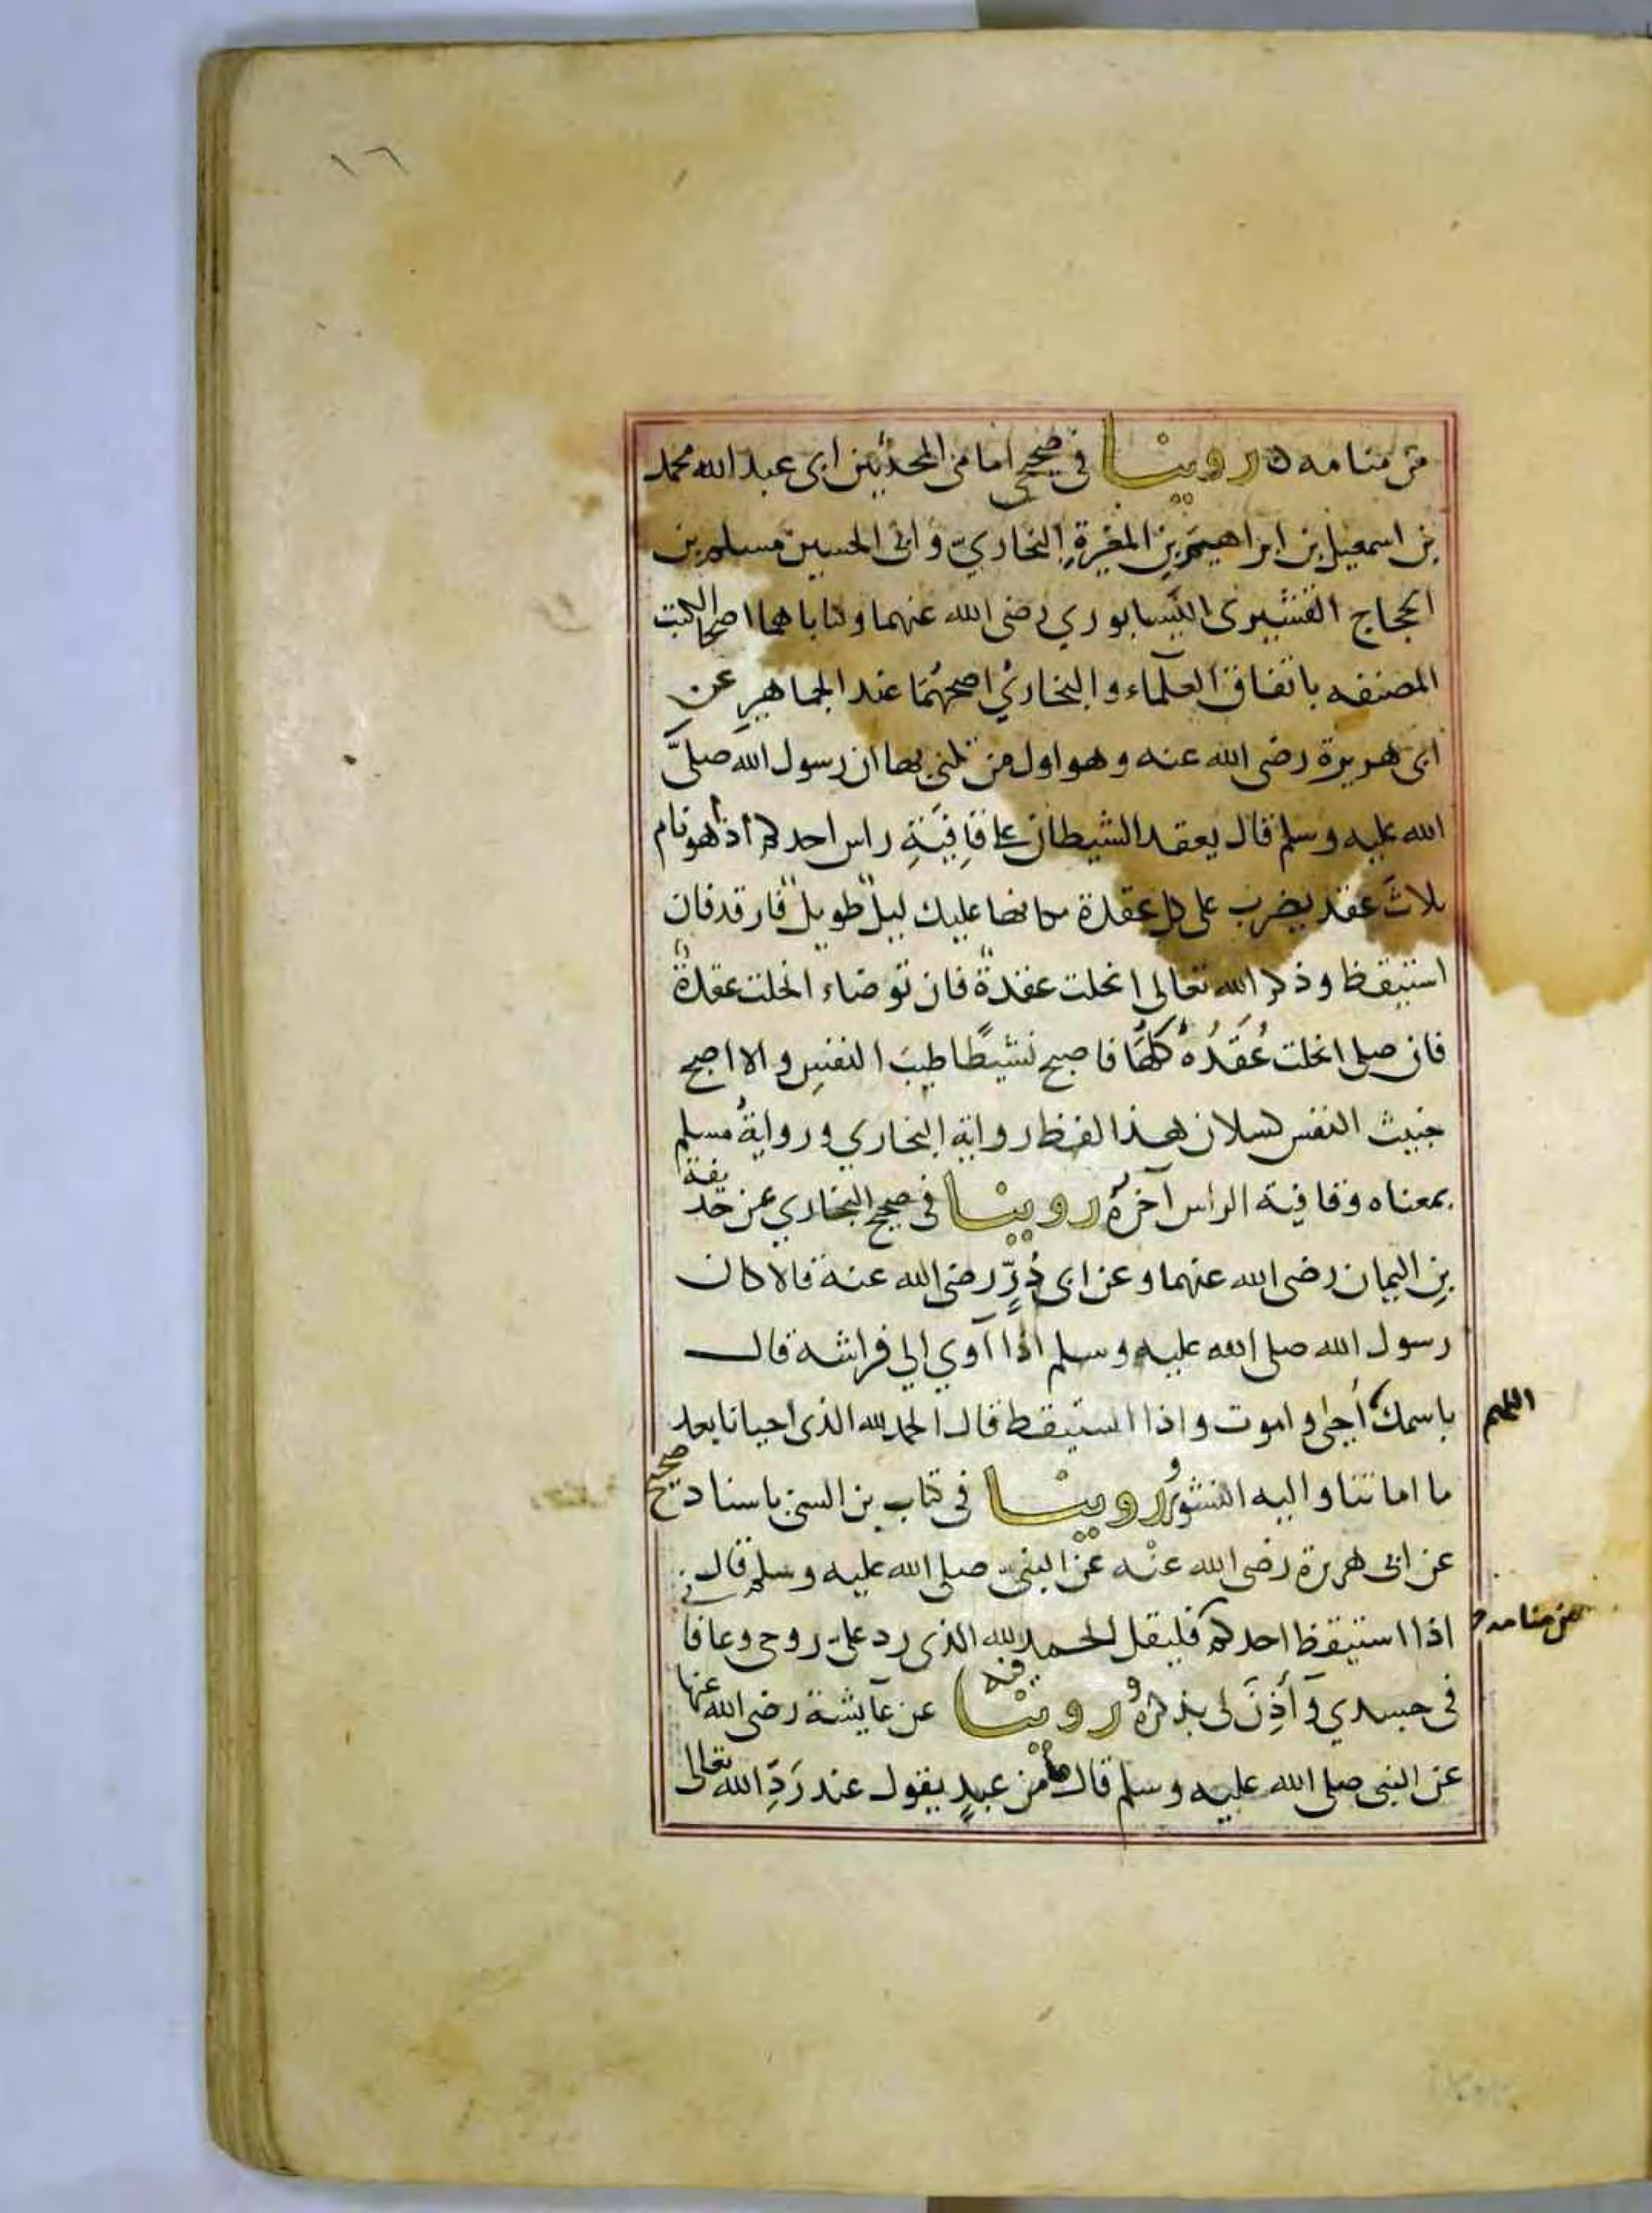 ١٦
من منامه ه روينا في صحيحي امامي المحدثين ابي عبد الله محمد
بن اسمعيل بن ابراهيم بن المغيرةِ البخاريّ وابي الحسين مسلم بن
الحجاج القشيري النيسابوري رضي الله عنهما وكتاباهما اصحا الكتب
المصنفه باتفاق العلماء والبخاري اصحهُمَا عند الجماهير عن
ابي هريرة رضي الله عنه وهو اول من كني بها ان رسول الله صلىَّ
الله عليه وسلم قال يعقد الشيطان على قافِيَةِ راس احدكم اذا هو نام
ثلاثَ عقد يضرب على كل عقدة مكانها عليك ليلٌ طويلٌ فارقد فان
استيقظ وذكر الله تعالى انحلت عقدةٌ فان توضاء انحلت عقدةٌ
فان صلى انحلت عُقَدُهُ كلُّهَا فاصبح نشيطًا طيبَ النفسِ والا اصبح
خبيث النفس كسلان هذا لفظ رواية البخاري ورواية مسلم
بمعناه وقافية الراس آخرهُ روينا في صحيح البخاري عن حذيفة
بنِ اليمان رضي الله عنهما وعن ابي ذُرٍّ رضي الله عنه قالا كان
رسول الله صلى الله عليه وسلم اذا آوي الي فراشه قال
باسمك أحيى واموت واذا استيقظ قال الحمد لله الذي احيانا بعد
اللهم
ما اماتنا واليه النشورُ روينا في كتاب بن السني باسناد صحيح
عن ابي هريرة رضي الله عنه عن النبي صلى الله عليه وسلم قال
اذا استيقظ احدكم فليقل الحمد لله الذي رد عليّ روحي وعافاني
من منامه
في جسدي وآذِنَ لي بذكرهُ روينا فيه عن عآيشة رضي الله عنها
عن النبي صلى الله عليه وسلم قال ما من عبدٍ يقول عند رَدِّ الله تعالى